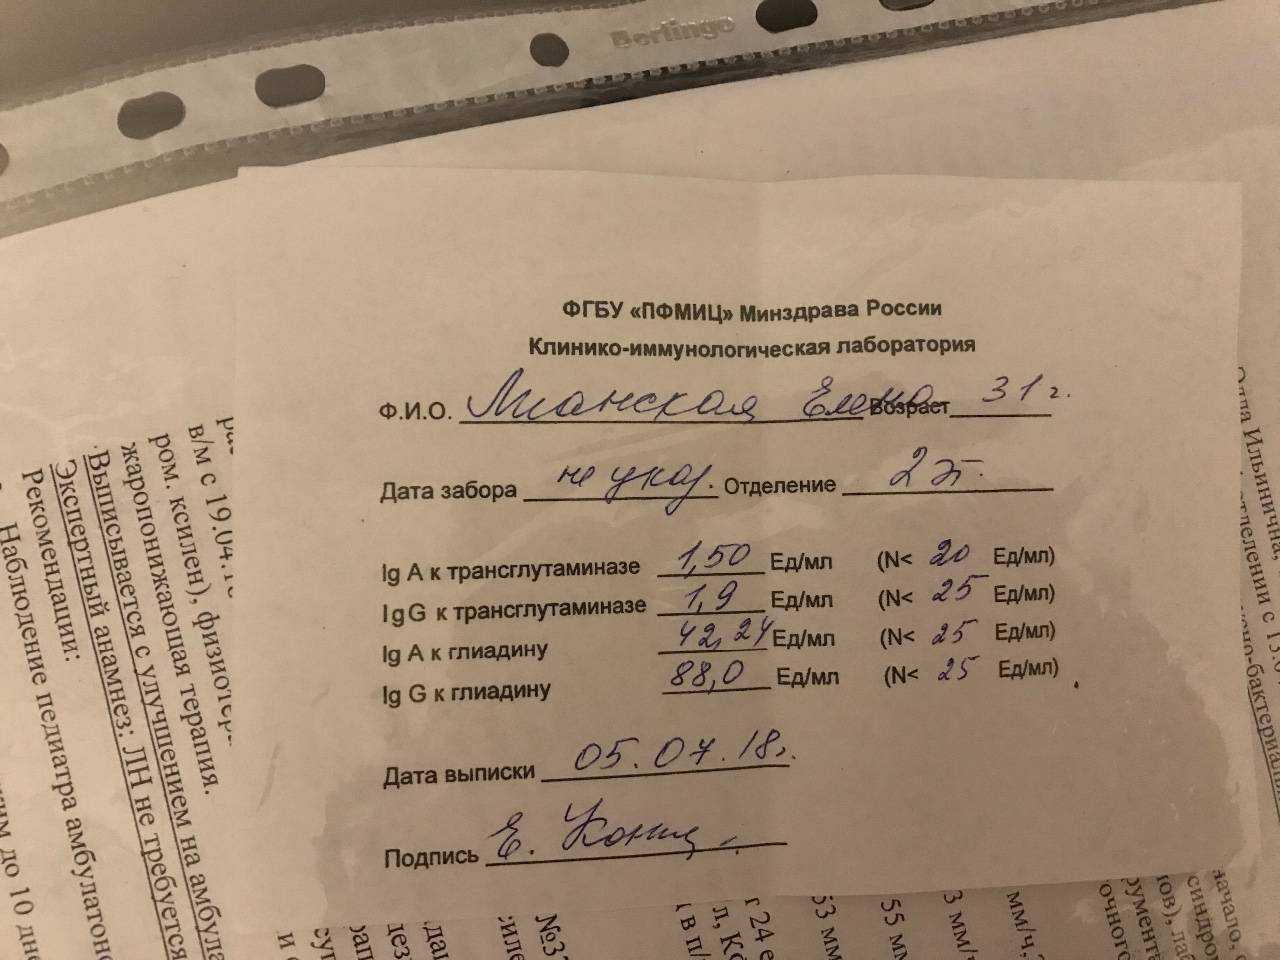 Berlingo
ФГБУ «ПФМИЦ» Минздрава России
Клинико-иммунологическая лаборатория
Ф.И.О. Лианская Елена Возраст 31 г.
Дата забора не указ. Отделение 2 эт.
Ig A к трансглутаминазе 1,50 Ед/мл (N< 20 Ед/мл)
Ig G к трансглутаминазе 1,9 Ед/мл (N< 25 Ед/мл)
Ig A к глиадину 42,24 Ед/мл (N< 25 Ед/мл)
Ig G к глиадину 88,0 Ед/мл (N< 25 Ед/мл)
Дата выписки 05.07.18г.
Подпись Е.
в/м с 19.04.
ром. ксилен), физиотер
жаропонижающая терапия.
Выписывается с улучшением на амбула
Экспертный анамнез: ЛН не требуется
Рекомендации:
Наблюдение педиатра амбулаторно
до 10 дне
Ильинична,
отделении с 13.0
но-бактериальн
начало, о
синдром
ов), лаб
румента
очного
мм/ч,
3 мм/ч
55 мм
53 мм
г 24 е
л, Ко
в п/
№3